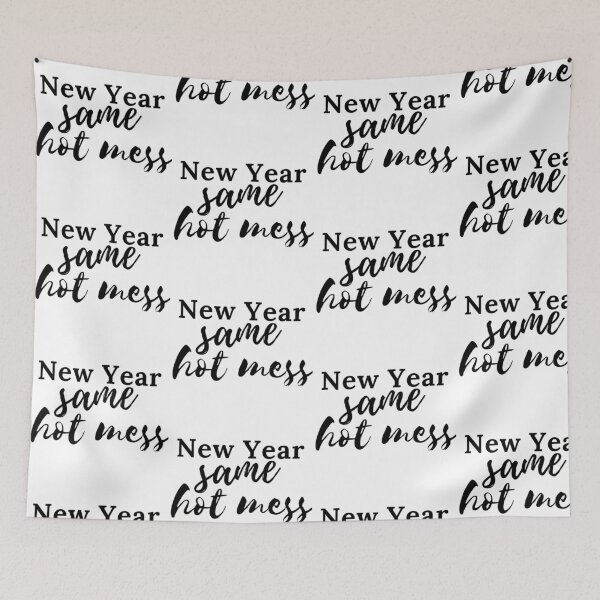 New Year
same
hot mess
New Year
same
hot mess
New Year
same
hot mess
New Year
hot mess
New Year
same
hot mess
New Year
same
hot mess
New Year
same
hot mess
New Year
same
hot mess
New Year
same
hot mess
New Year
same
hot mess
New Year
hot mes
New Yea
same
hot mes
New Yea
same
hot mes
New Yea
same
hot mes